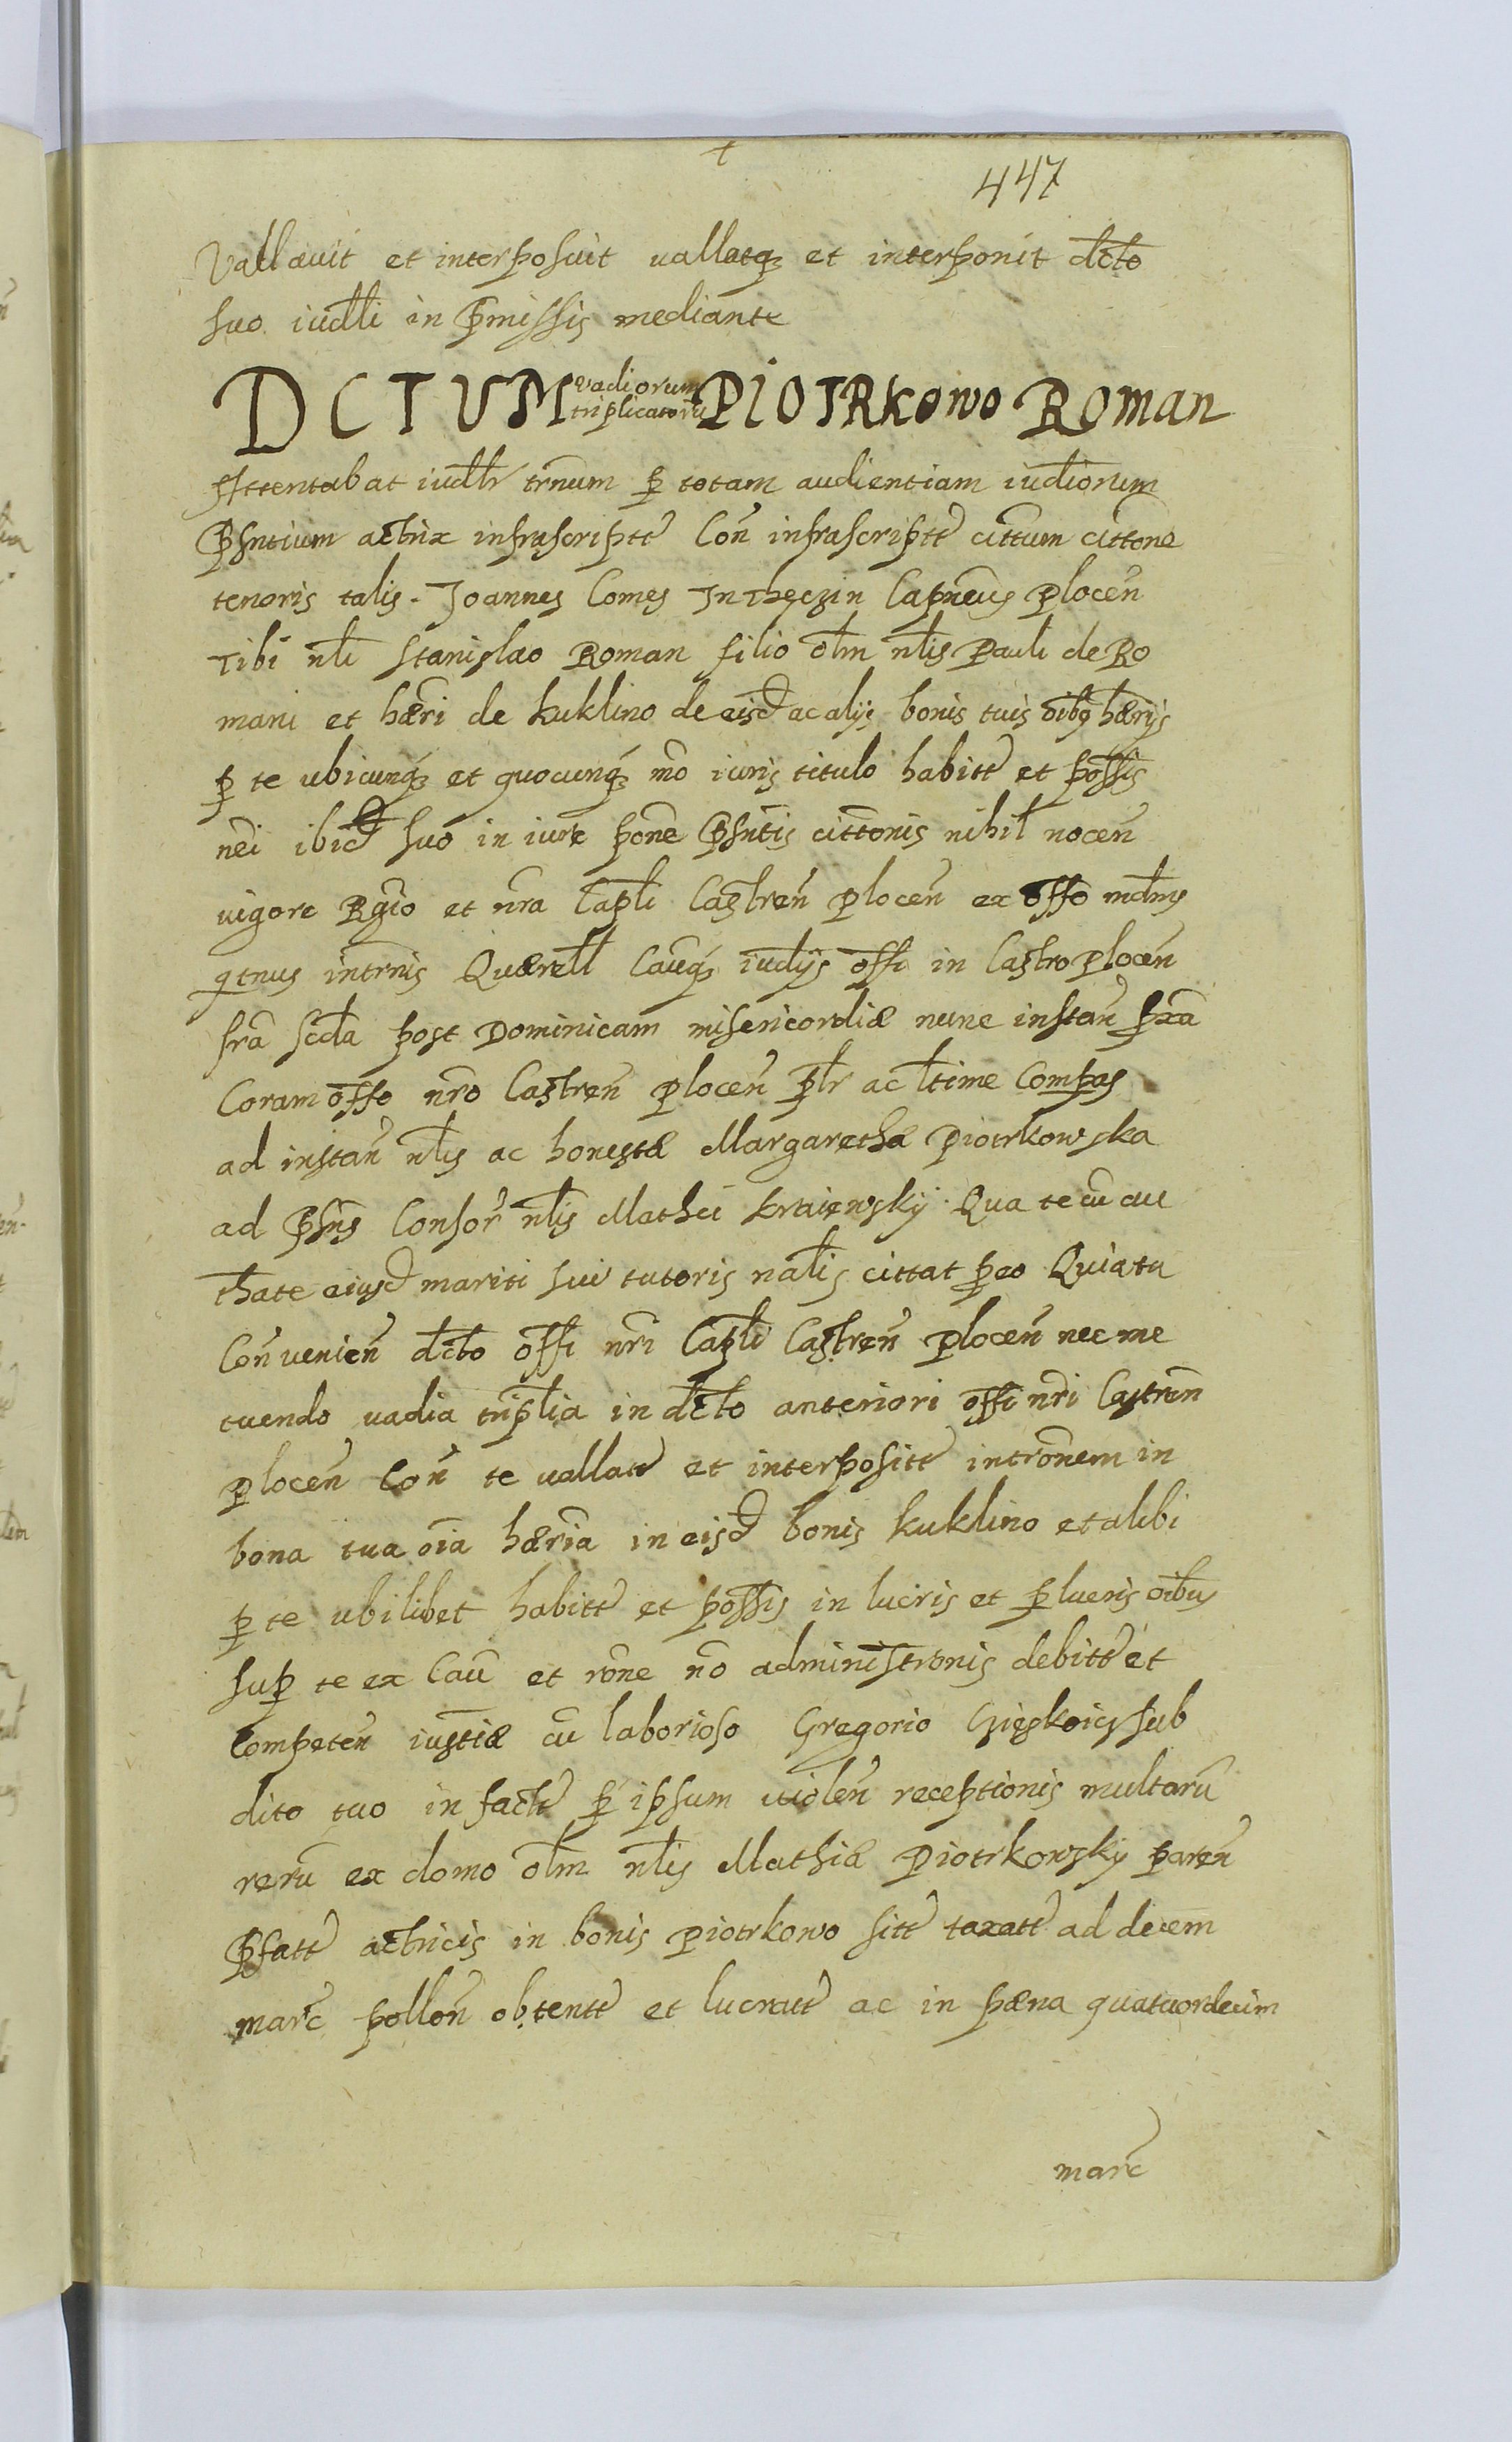 447
Vallauit et interposuit uallatq₃ et interponit dcto
suo iudli in Pmissis mediante
DCTUM vadiorum triplicatorū PIOTRKOWO ROMAN
Attentabat iudlr trnum p totam audientiam iudiorum
Psntium actrix infrascriptt Con infrascriptt cittum cittone
tenoris talis. Joannes Comes In Theczin Capneus plocen
Tibi nli Stanislao Roman filio olm nlis Pauli de Ro
mani et hæri de kuklino de eisd ac alijs bonis tuis oibq hærijs
p te ubicunq₃ et quocunq₃ mo iuris titulo habitt et possis
nei ibid suo in iure pone Psntis cittonis nihil nocen
uigore Rgio et nra Capli Castren plocen ex offo mdmus
qtnus intrnis Quærell Cauq₃ iudijs offi in Castro plocen
fra scda post Dominicam misericordiæ nunc instan pxa
Coram offo nro Castren plocen plr ac ltime Compas
ad instan nlis ac honestæ Margaretha Piotrkowska
ad Psns Consor nlis Mathei Kraiewsky Qua te cū au
thate eiusd mariti sui tutoris nalis cittat peo Quia tu
Conuenien dcto offi nri Capli Castren plocen nec me
tuendo uadia triplia in dcto anteriori offi nri Castren
plocen Con te uallatt et interpositt intronem in
bona tua oia hæria in eisd bonis kuklino et alibi
p te ubilibet habitt et possis in lucris et plucris oibus
sup te ex Cau et rone no administronis debitt et
Competen iustiæ cū laborioso Gregorio sub
dito tuo in factt p ipsum uiolen receptionis multarū
rerū ex domo olm nlis Mathiæ Piotrkowsky paren
Pfatt actricis in bonis piotrkowo sitt taxatt ad decem
marc pollon obtentt et lucratt ac in pæna quatuordecim
marc